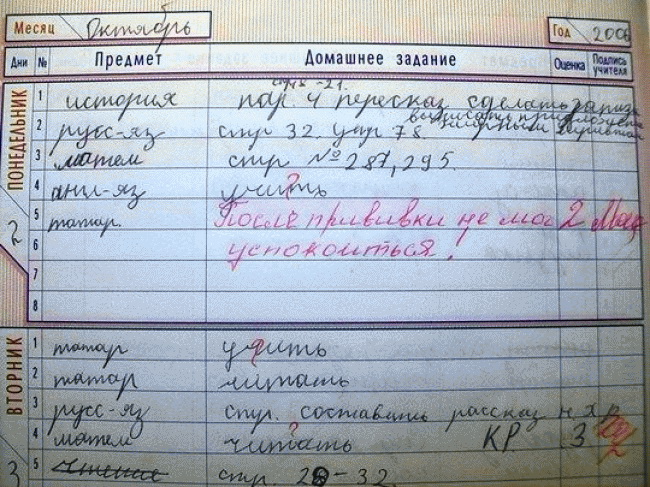 Месяц Октябрь Год 2006
Дни № Предмет Домашнее задание Оценка Подпись учителя
ПОНЕДЕЛЬНИК
2
стр 18-21.
1 история пар. 4 пересказ сделать запись
2 русс-яз стр 32. упр 78. выписать предложения
3 матем стр №287, 295.
4 анг-яз учить
5 татар. После прививки не мог 2
6 успокоиться!
7
8
ВТОРНИК
3
1 татар учить
2 татар читать
3 русс-яз стр. составить рассказ н.хр
4 матем читать КР 3
5 чтение стр. 28-32